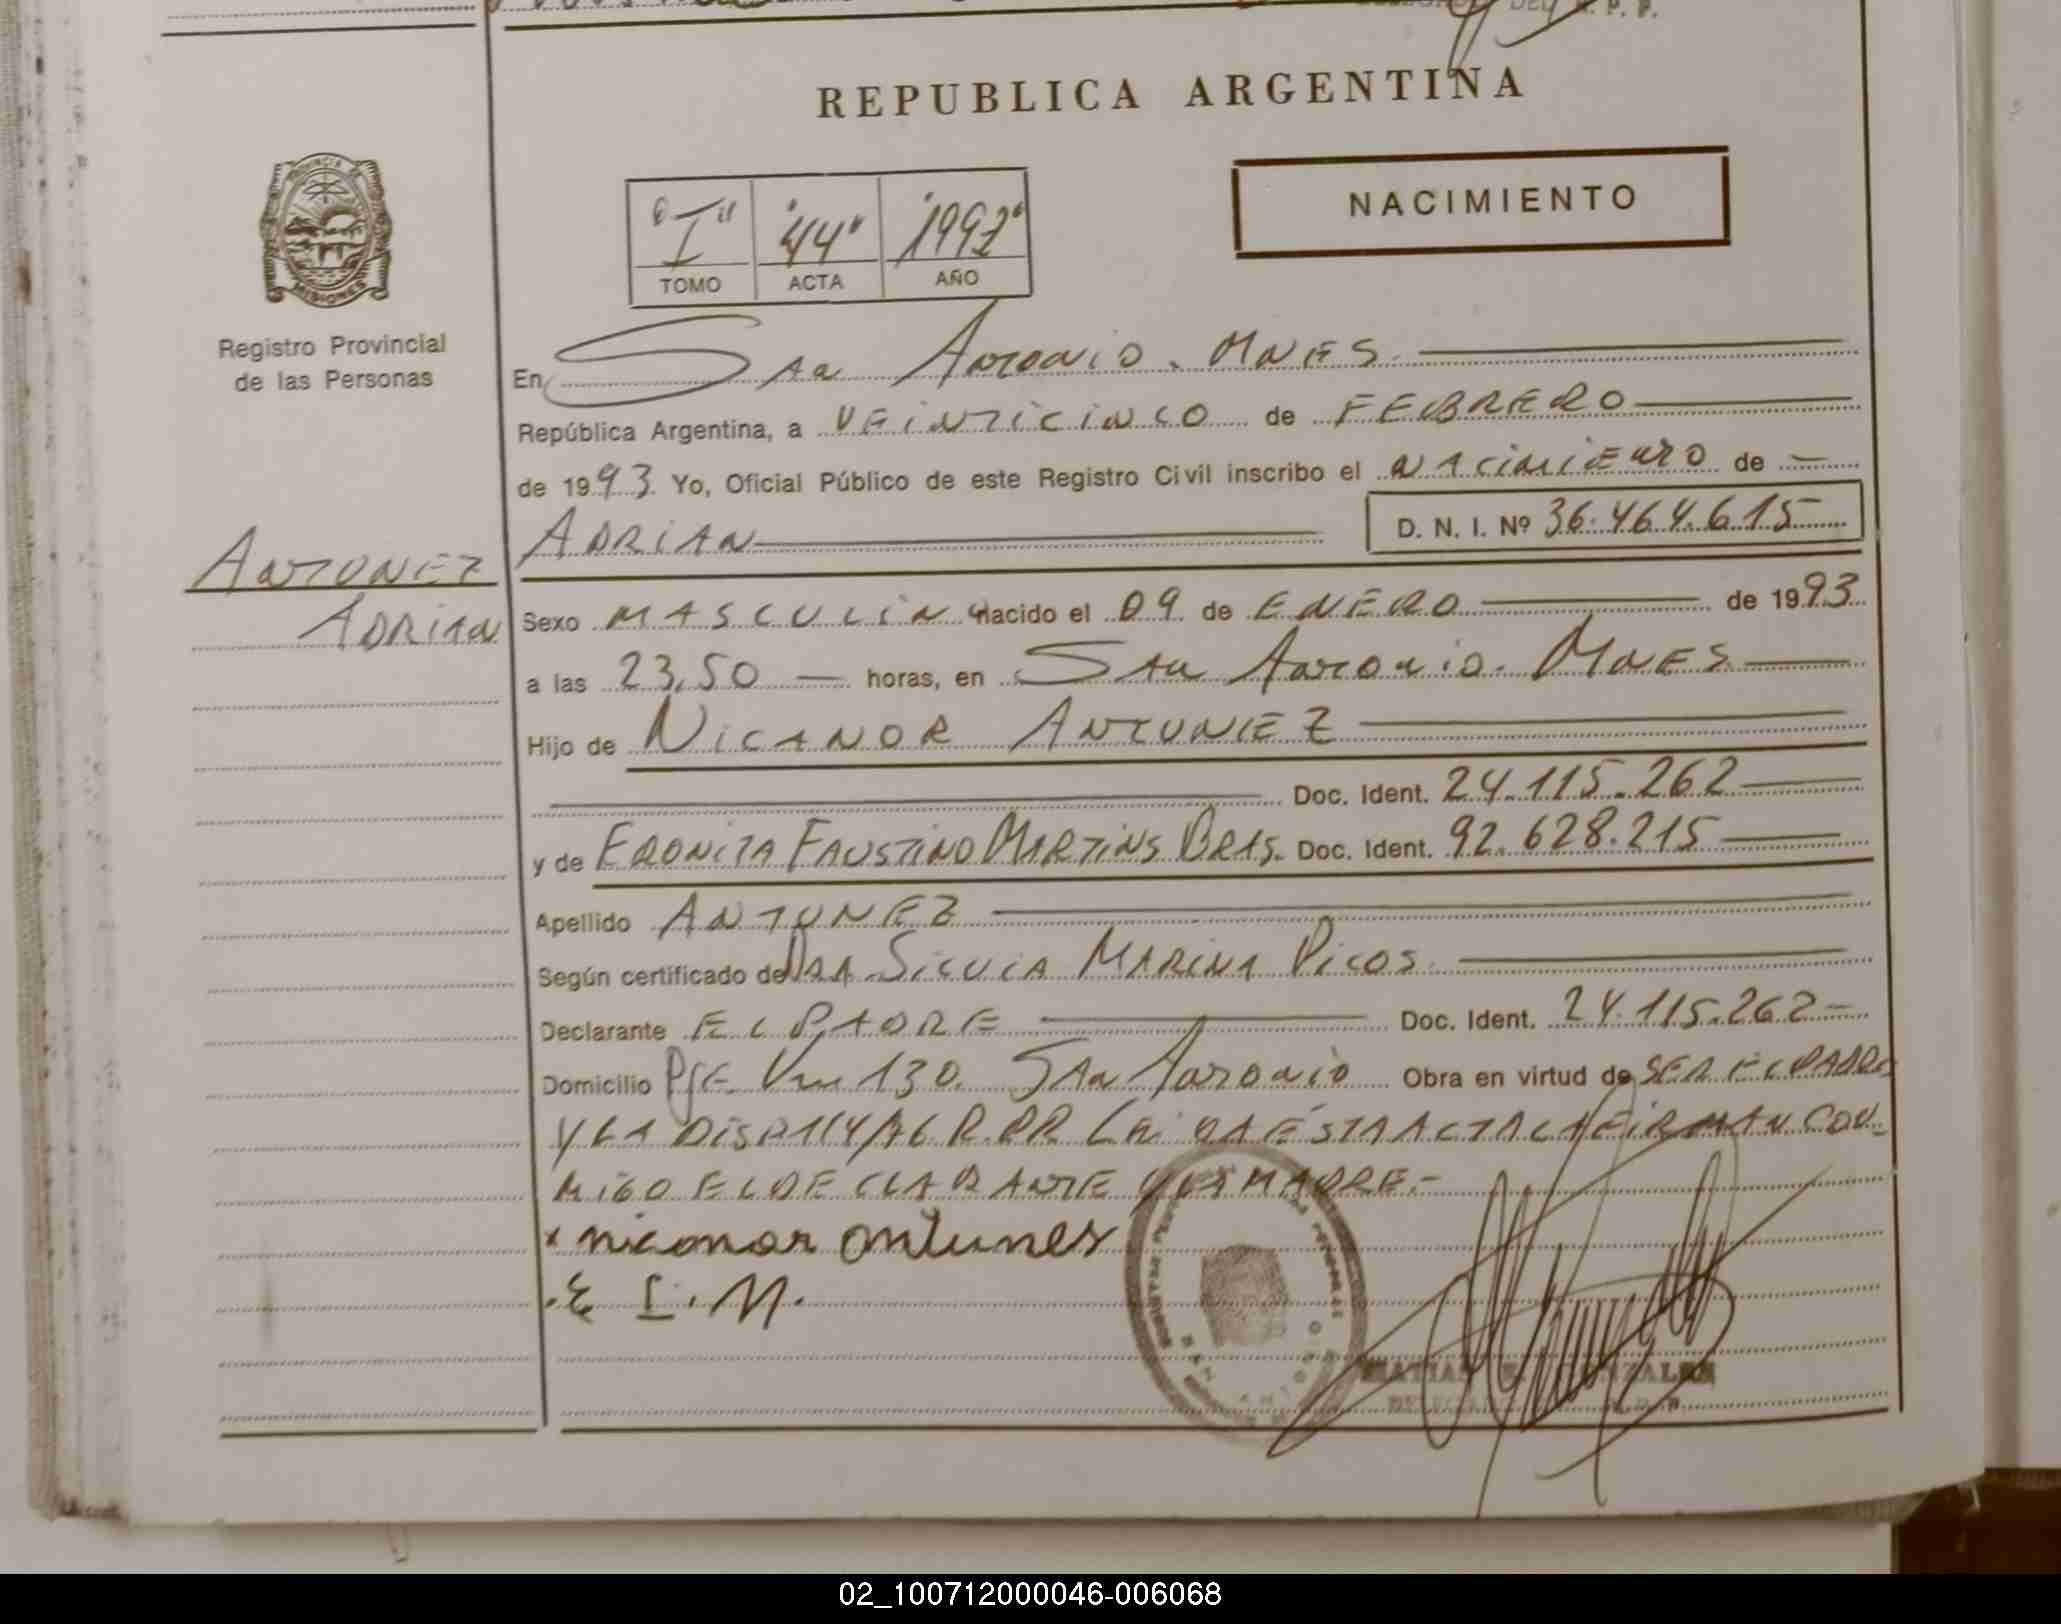 REPUBLICA ARGENTINA
PROVINCIA DE
MISIONES
Registro Provincial
de las Personas
NACIMIENTO
"I" "44" "1993"
TOMO ACTA AÑO
En San Antonio. Mnes.
República Argentina, a VEINTICINCO de FEBRERO
de 1993. Yo, Oficial Público de este Registro Civil inscribo el NACIMIENTO de
ADRIAN D. N. I. Nº 36.464.615
ANTONEZ
ADRIAN
Sexo MASCULINO nacido el 09 de ENERO de 1993
a las 23,50 horas, en SAN ANTONIO. MNES
Hijo de NICANOR ANTUNEZ
Doc. Ident. 24.115.262
y de ERONITA FAUSTINO MARTINS BRAS. Doc. Ident. 92.628.215
Apellido ANTUNEZ
Según certificado de DRA. SILVIA MARINA PICOS
Declarante EL PADRE Doc. Ident. 24.115.262
Domicilio PJE. Km 130. SAN ANTONIO Obra en virtud de SER EL PADRE
Y LA DISP. 114/76 R.P.P. LEIDA ESTA ACTA LA FIRMAN CON-
MIGO EL DECLARANTE Y LA MADRE.-
x nicanor antunes
. E F. M.
02_100712000046-006068